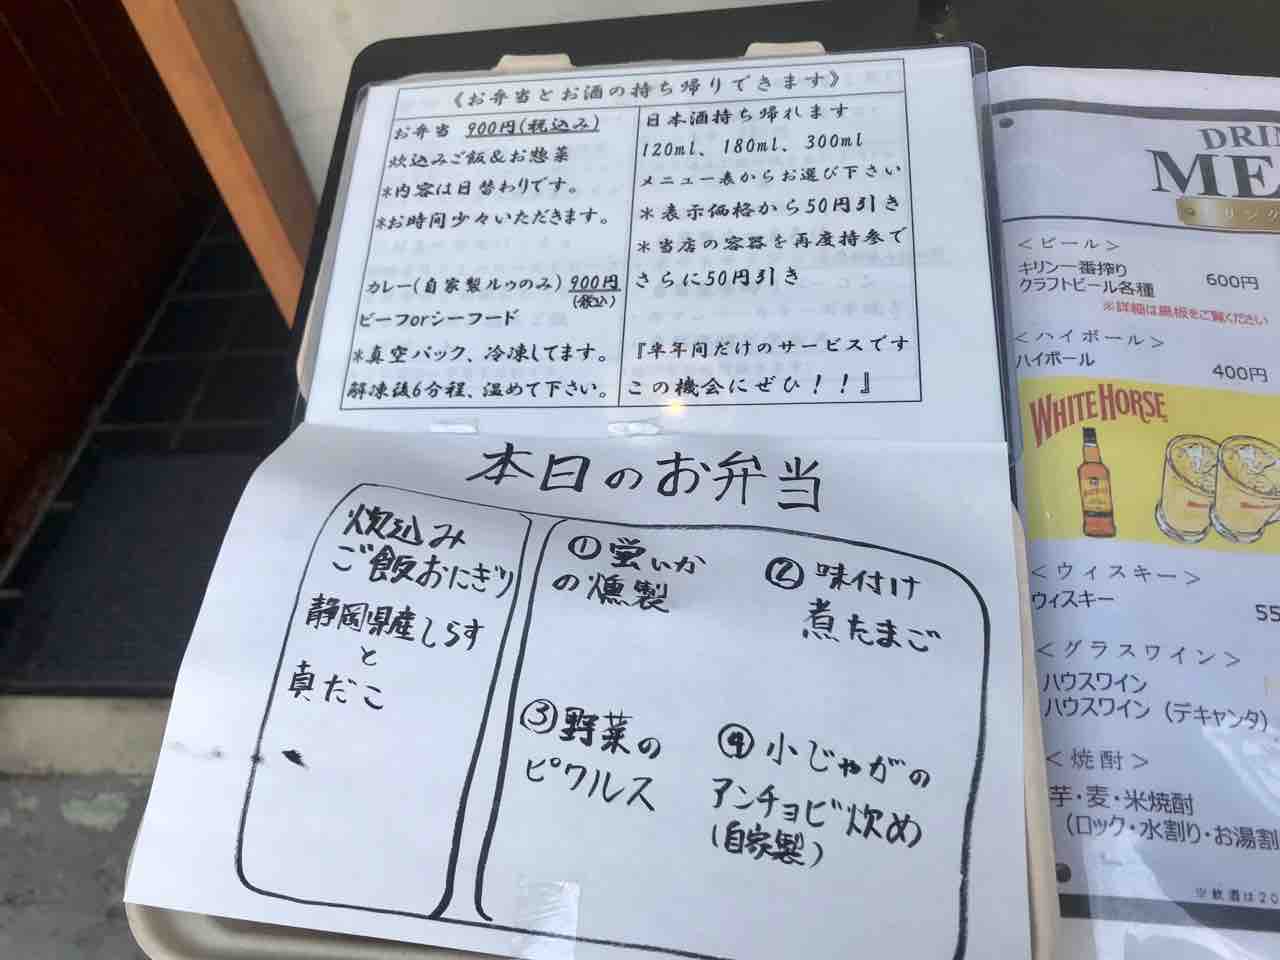 《お弁当とお酒の持ち帰りできます》
お弁当 900円(税込み)
炊込みご飯＆お惣菜
*内容は日替わりです。
*お時間少々いただきます。
カレー(自家製ルゥのみ) 900円
(税込)
ビーフorシーフード
*真空パック、冷凍してます。
解凍後6分程、温めて下さい。
日本酒持ち帰れます
120ml、180ml、300ml
メニュー表からお選び下さい
*表示価格から50円引き
*当店の容器を再度持参で
さらに50円引き
『半年間だけのサービスです
この機会にぜひ！！』
本日のお弁当
炊込み
ご飯おにぎり
静岡県産しらす
と
真だこ
①蛍いか
の燻製
②味付け
煮たまご
③野菜の
ピクルス
④小じゃがの
アンチョビ炊め
(自家製)
DRIN
ME
リンク
＜ビール＞
キリン一番搾り
クラフトビール各種 600円
※詳細は黒板をご覧ください
＜ハイボール＞
ハイボール 400円
WHITE HORSE
＜ウィスキー＞
ウィスキー 55
＜グラスワイン＞
ハウスワイン
ハウスワイン（デキャンタ）
＜焼酎＞
芋・麦・米焼酎
（ロック・水割り・お湯割
※飲酒は20